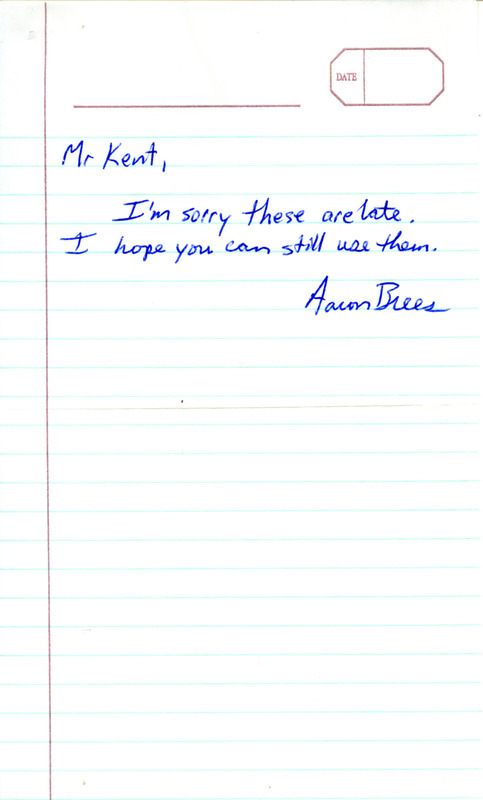 DATE
Mr Kent,
I'm sorry these are late.
I hope you can still use them.
Aaron Brees